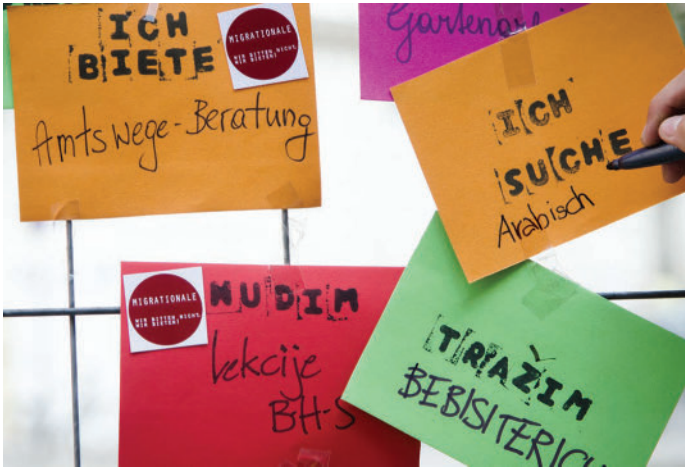 ICH
BIETE
MIGRATIONALE
WIR BITTEN NICHT,
WIR BIETEN!
Amtswege-Beratung
ICH
SUCHE
Arabisch
MIGRATIONALE
WIR BITTEN NICHT,
WIR BIETEN!
NUDIM
lekcije
BH-S
TRAŽIM